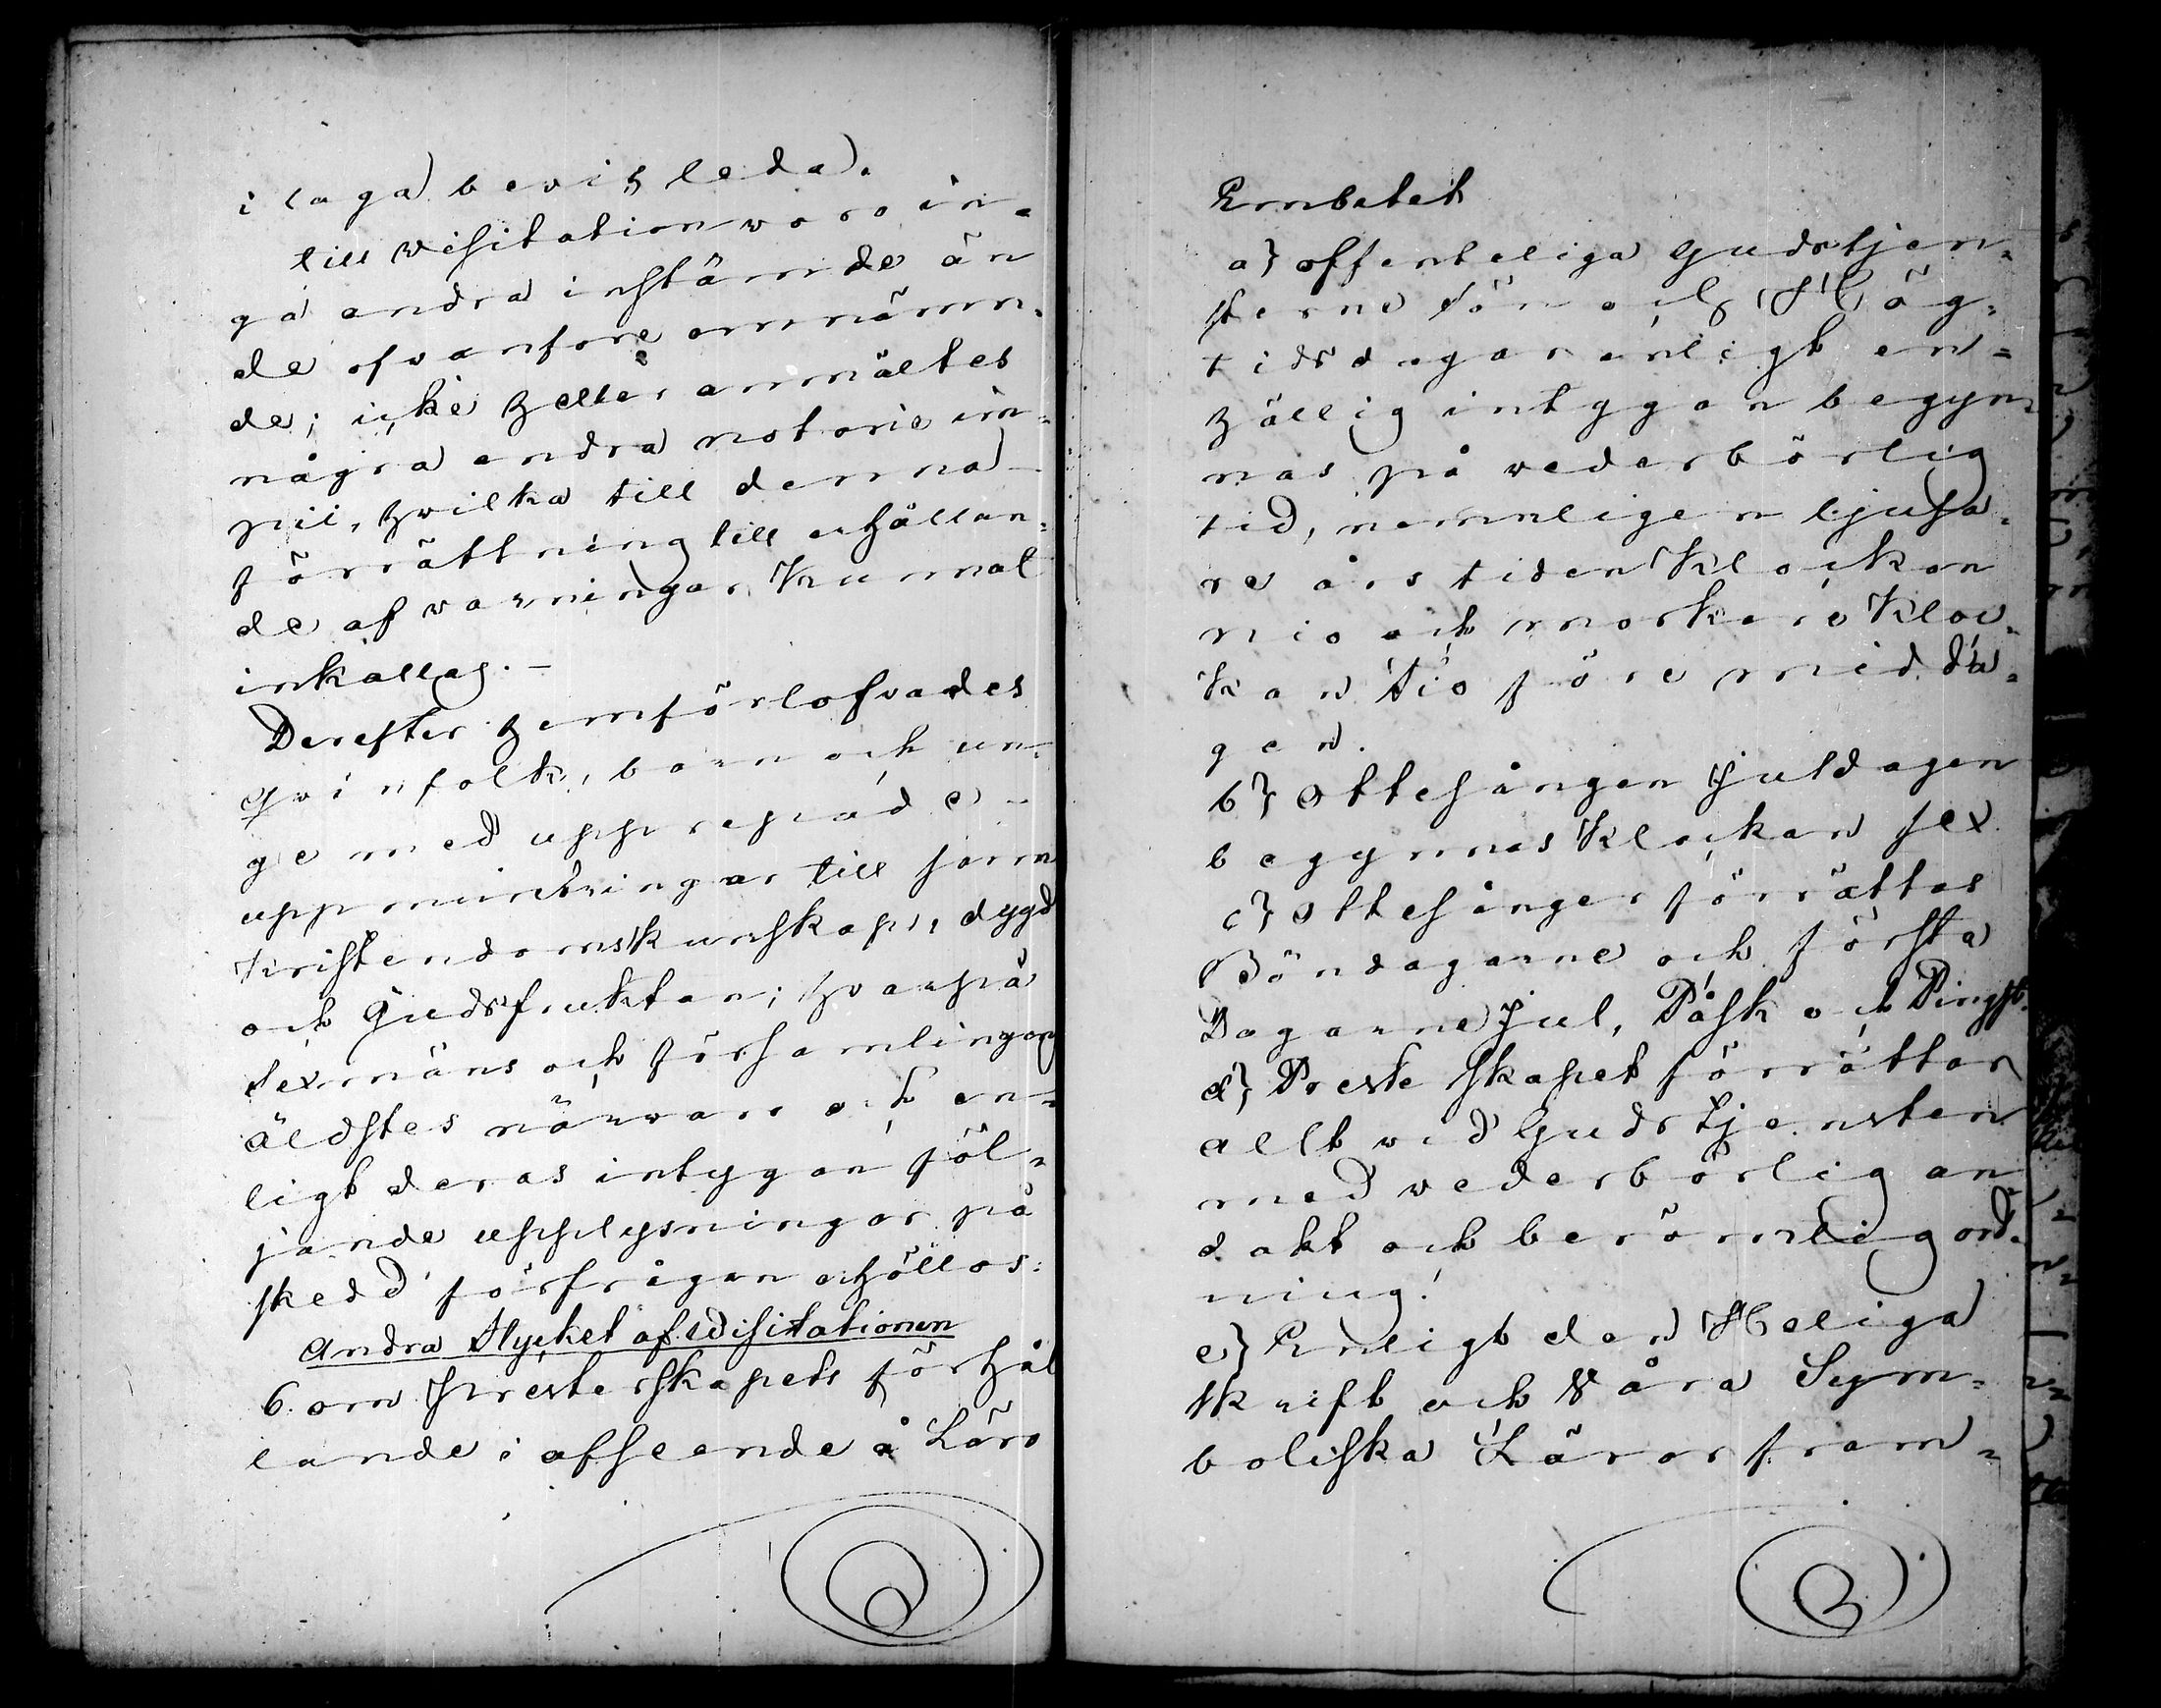 i laga bevis leda.
till visitation voro in-
ga andra instämde än
de ofvanföre omnämn-
de; icke heller anmältes
några andra notorie im-
pii, hvilka till denna
förrättning till erhållan-
de af varningar kunnat
inkallas. –
Derefter hemförlofvades
qvinfolk, barn och un-
ge med upprepade
uppmuntringar till sann
kristendomskunskap, dygd
och Gudsfruktan; hvarpå
sexmäns och församlingens
äldstes närvaro och en-
ligt deras intygan föl-
jande upplysningar på
skedd förfrågan erhöllos:
Andra Stycket af Visitationen
6. om Presterskapets förhål
lande i afseende å Läro
Embetet
a} offenteliga Gudstjen-
sterne sön och Hög-
tidsdagar enligt en-
hällig intygan begyn-
nas på vederbörlig
tid, nemnligen ljusa-
re årstiden Klockan
nio och mörkare Kloc-
kan tio före midda-
gen.
b} Ottesången Juldagen
begynnes Klockan sex.
c} Ottesånger förrättas
Böndagarne och första
Dagarne Jul, Påsk och Pingst.
d} Presteskapet förrättar
allt vid Gudstjensten
med vederbörlig an-
dakt och berömlig ord-
ning.
e} Enligt den Heliga
skrift och Våra Sym-
boliska Läror fram-